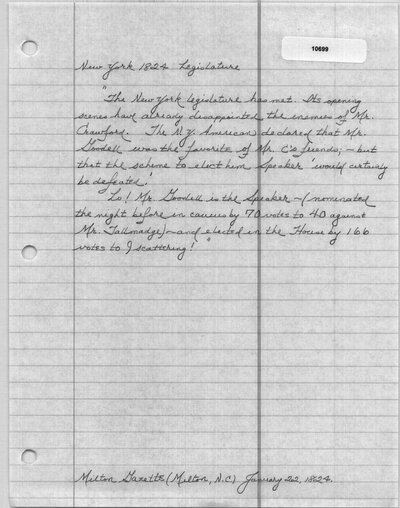 10699
New York 1824 Legislature
"The New York legislature has met. Its opening
scenes have already disappointed the enemies of Mr.
Crawford. The N.Y. American declared that Mr.
Goodell was the favorite of Mr. C's friends; - but
that the scheme to elect him Speaker 'would certainly
be defeated.'
Lo! Mr. Goodell is the Speaker - (nominated
the night before in caucus by 70 votes to 40 against
Mr. Tallmadge) - and elected in the House by 166
votes to 9 scattering!"
Milton Gazette (Milton, N.C) January 22, 1824.